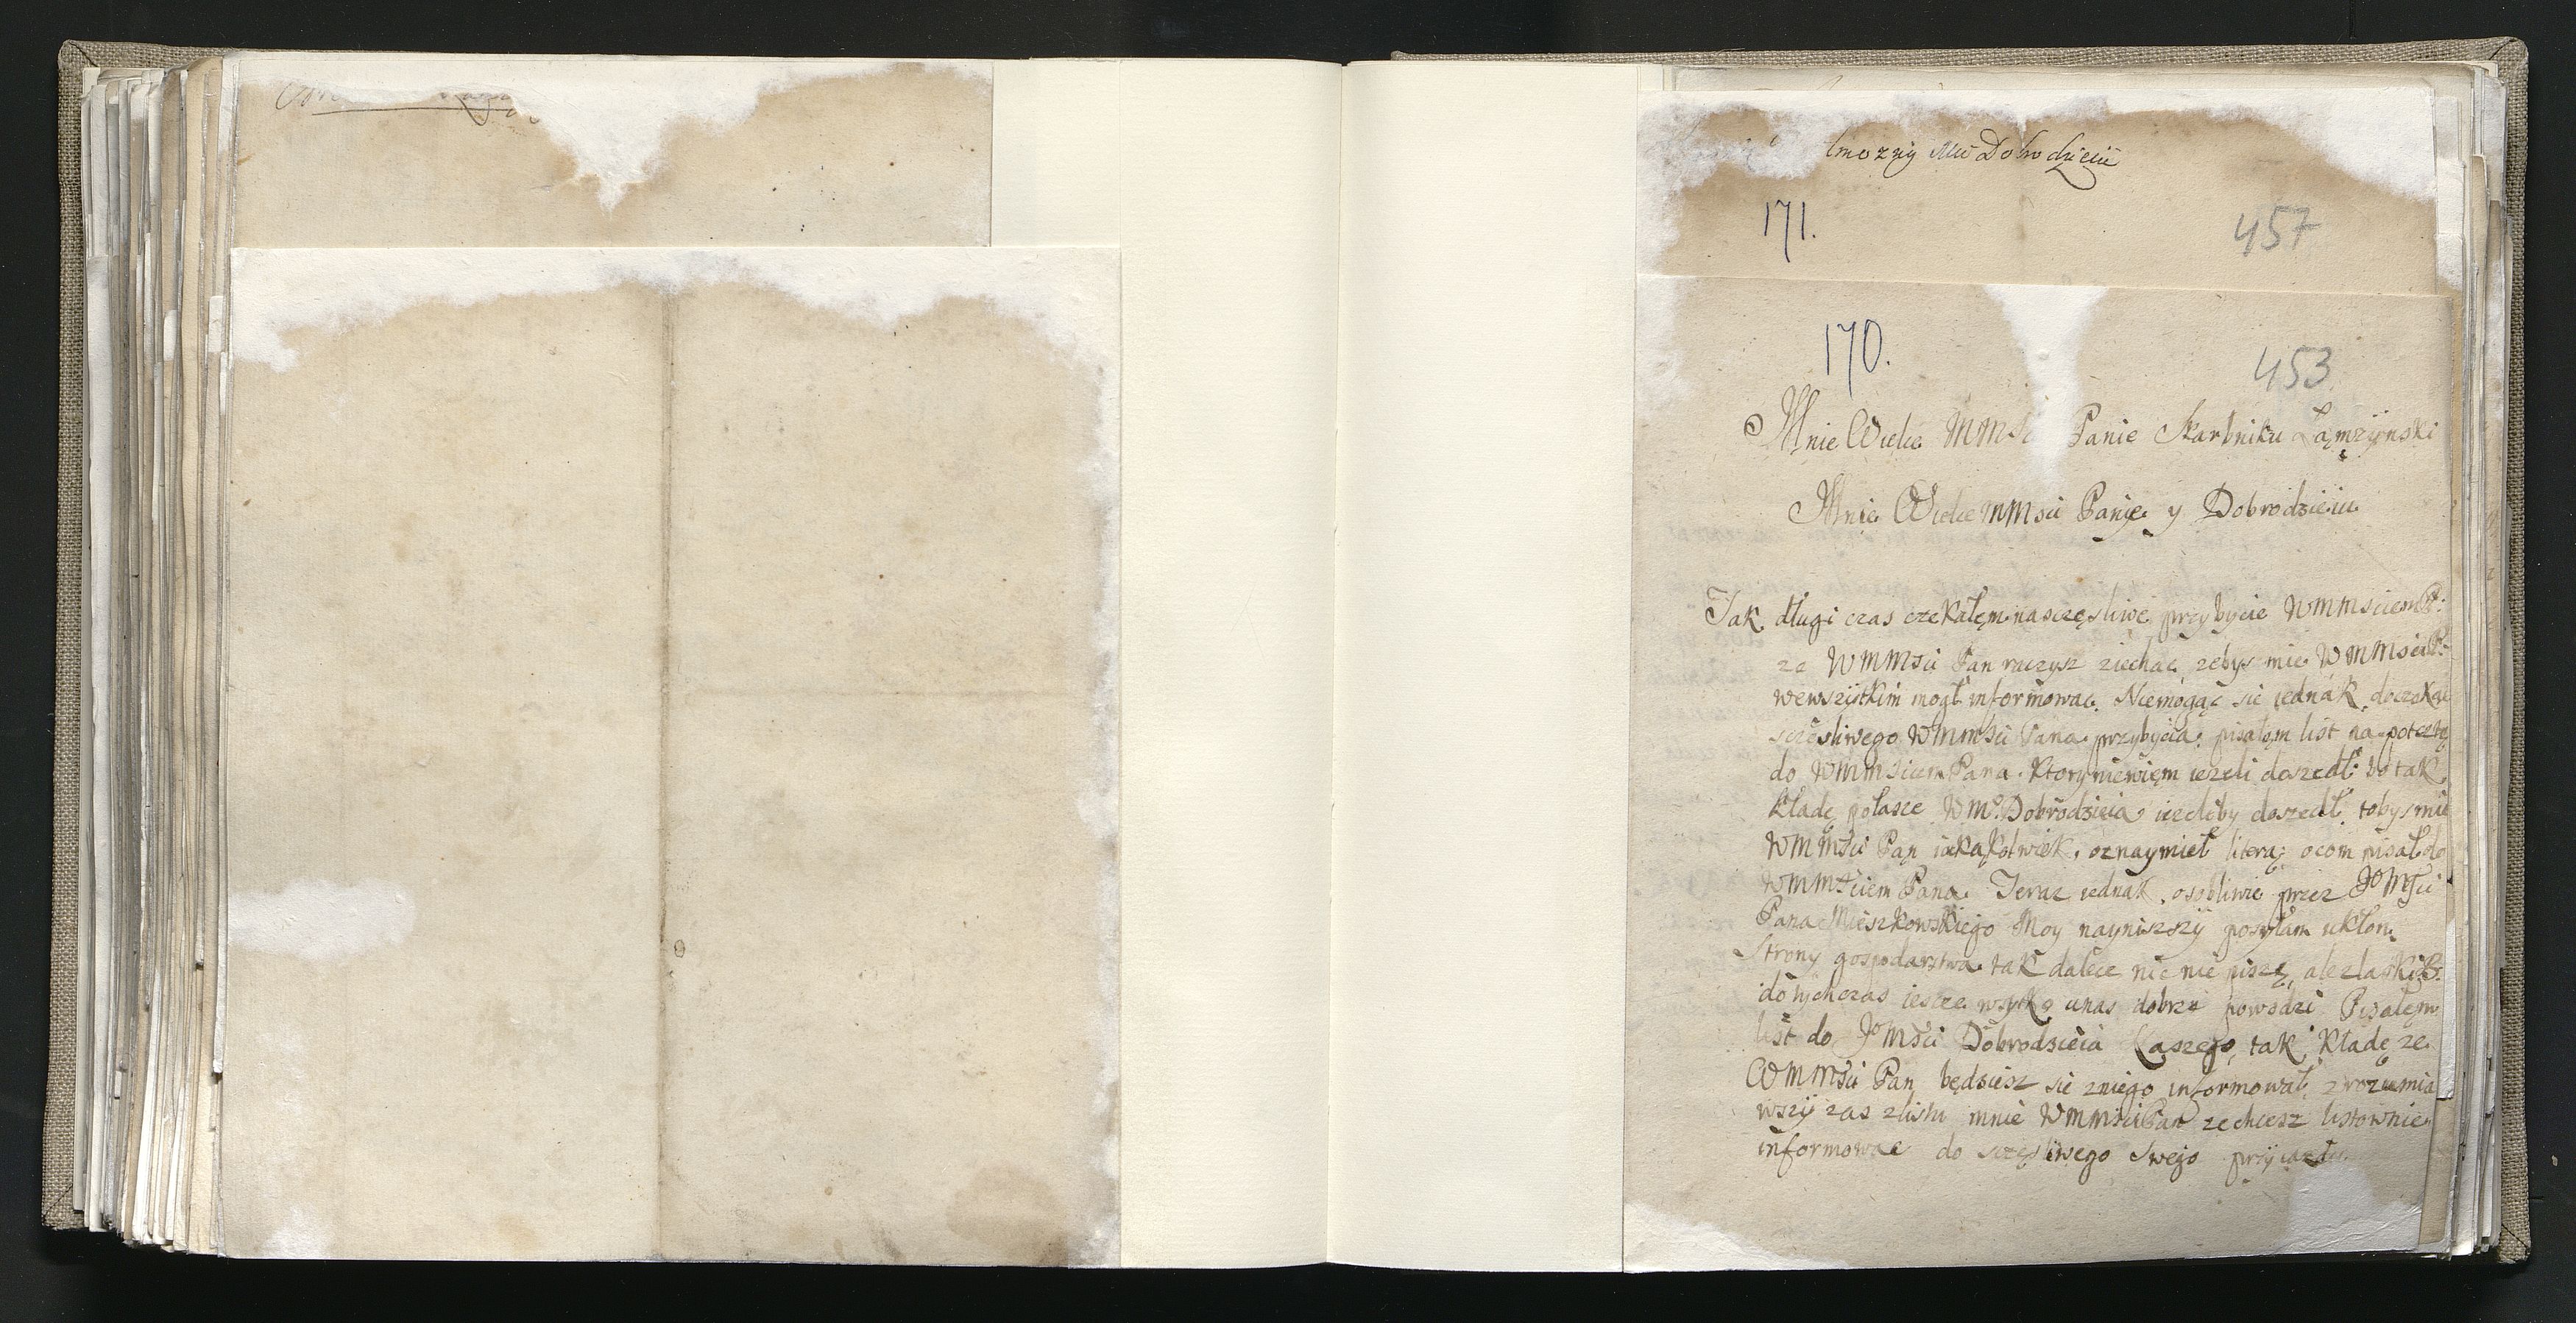 lmozny Mü Dobrodzieiü
171.
457
170.
453
Mnie Wielce MMSci Panie Skarbniku Łąmzÿnski
Mnie Wielce MMsci Panie y Dobrodzieiu
Jak długi czas czekałęm nasczęsliwe przybycie WMMsciemP:
ze WMMsci Pan raczysz ziechac zebys mie WMMsciP:
wewszÿstkim mogł informowac. Niemogąc sie iednak doczekac
sczesliwego WMMsci Pana przybycia, pisałęm list na potcztę
do WMMsciem Pana. Ktory niewięm iezeli doszedł: bo tak
kładę połasce WMo Dobrodzieia iezeliby doszedł, tobys mie
WMMsci Pan iakąkolwiek oznaymieł literą, ocom pisał do
WMMsciem Pana. Teraz iednak osobliwie przez Jo Msci
Pana Mieszkowskiego Moy nayniszzÿ posyłam ukłon.
Strony gospodarstwa tak dalece nic nie piszę, ale złaski B.
dotychczas iescze wsytko unas dobrze powodzi Pisałęm
list do JoMsci Dobrodzieia Łaszego, tak kładę ze
WMMsci Pan będziesz sie zniego informował, zrozumia
wszÿ zas zlistu mnie WMMsci Pan zechcesz listownie
informowac do sczęsliwego Swego przÿiazdu